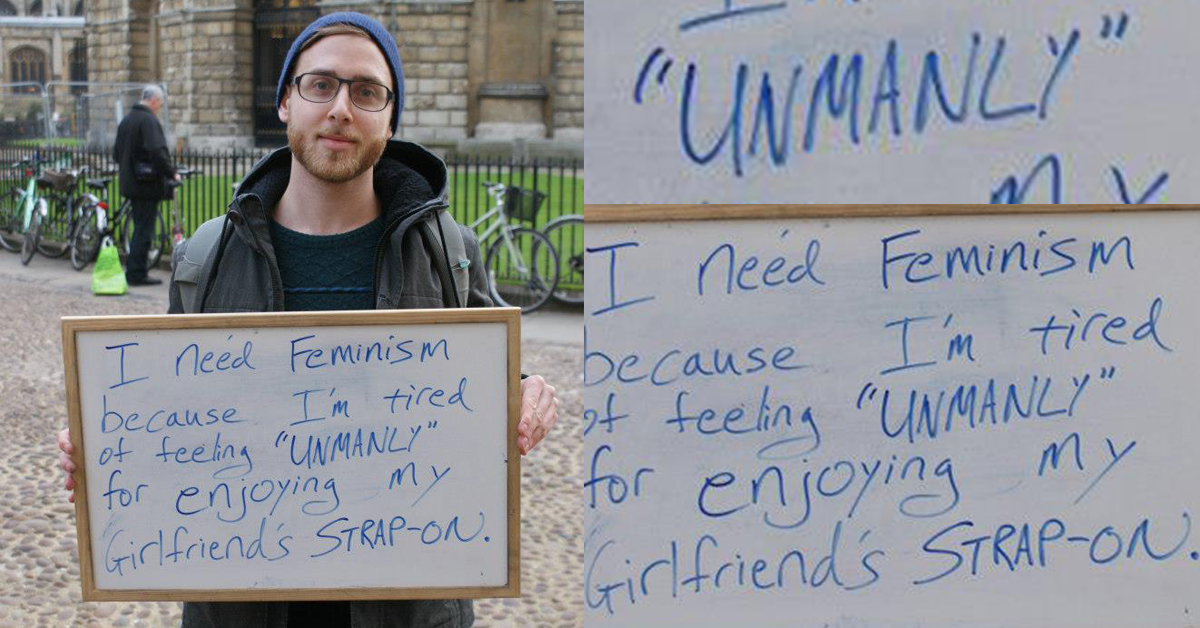 I need Feminism
because I'm tired
of feeling "UNMANLY"
for enjoying my
Girlfriend's STRAP-ON.
"UNMANLY"
my
I need Feminism
because I'm tired
of feeling "UNMANLY"
for enjoying my
Girlfriend's STRAP-ON.